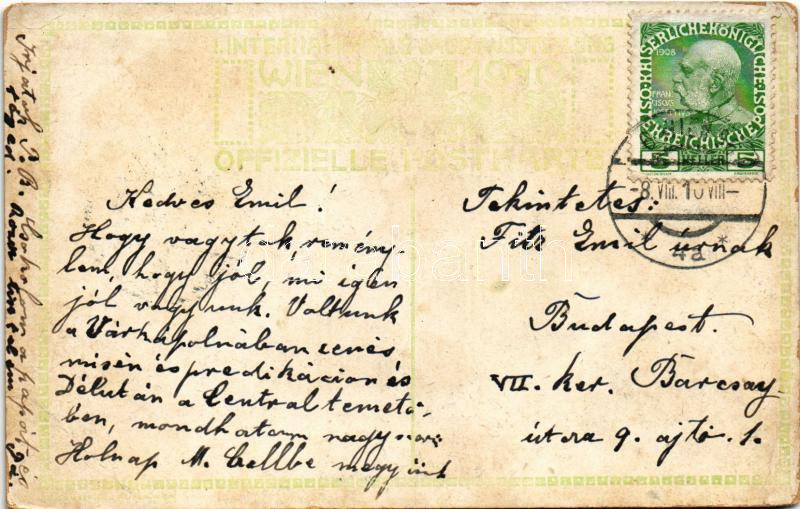 I. INTERNATIONALE JAGDAUSSTELLUNG
WIEN 1910
OFFIZIELLE POSTKARTE
KAISERLICHE KÖNIGLICHE
ÖSTERREICHISCHE
1908
5 HELLER 5
-8.VIII.10 VIII-
4a *
Kedves Emil!
Hogy vagytok, remény-
lem, hogy jól, mi igen
jól vagyunk. Voltunk
a Várkápolnában zenés
misén és predikáción és
Délután a Central temető-
ben, mondhatom nagyszerű
Holnap M. Cellbe megyünk
Tekintetes:
Emil úrnak
Budapest.
VII. ker. Barcsay
utcza 9. ajtó. 1.
Irjatok P. R. Csókolom a papát és